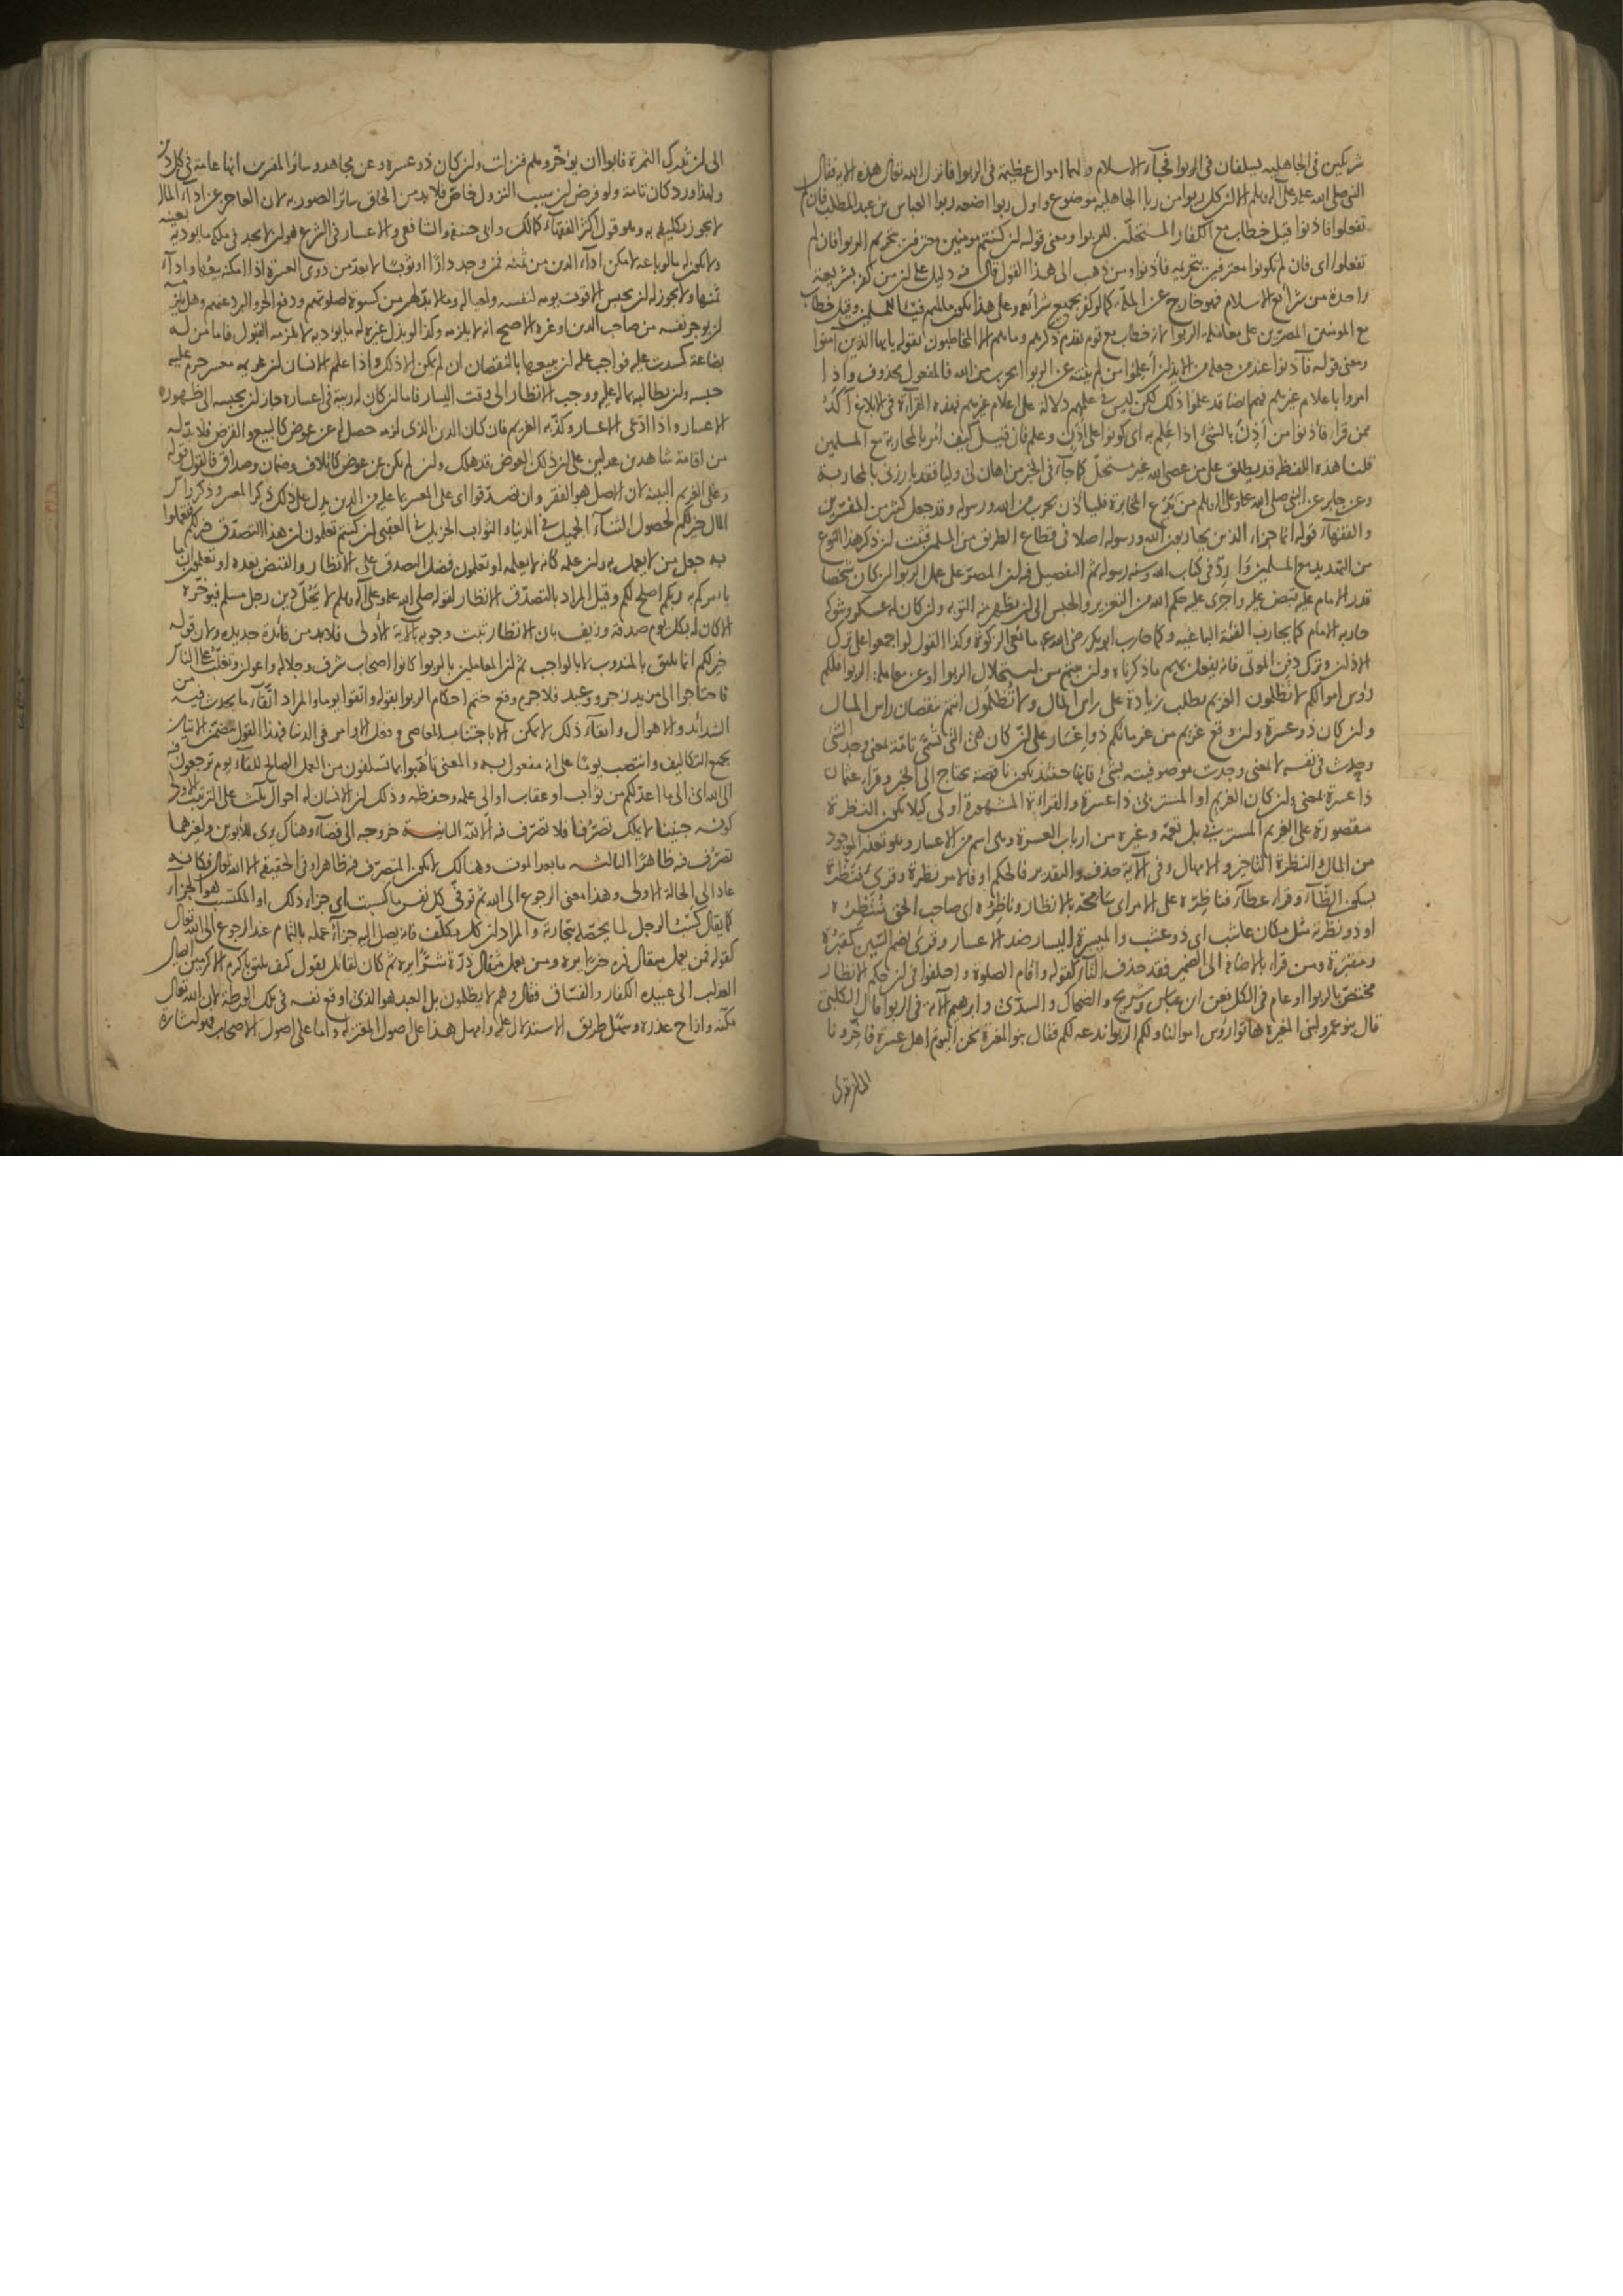 شريكين في الجاهلية يسلفان في الربوا فجآء الاسلام ولهما اموال عظيمة في الربوا فانزل الله تعالى هذه الاية فقال
النبي صلى الله عليه وعلى آله وسلم الا ان كل ربوا من ربا الجاهلية موضوع واول ربوا اضعه ربوا العباس بن عبد المطلب فان لم
تفعلوا فاذنوا قيل خطاب مع الكفار المستحلّين للربوا ومعنى قوله ان كنتم مومنين معترفين بتحريم الربوا فان لم
تفعلوا اى فان لم تكونوا معترفين بتحريمه فأذنوا ومن ذهب الى هذا القول قال فيه دليل على ان من كفر بشريعة
واحدة من شرائع الاسلام فهو خارج عن الملة كما لو كفر بجميع شرائعه وعلى هذا يكون مالهم فيئا للمسلمين وقيل خطاب
مع المومنين المصرّين على معاملة الربوا لانه خطاب مع قوم تقدم ذكرهم وما هم الا المخاطبون بقوله يا ايها الذين آمنوا
ومعنى قوله فآذنوا عند من جعله من الايذان أعلموا من لم ينته عن الربوا بحرب من الله فالمفعول محذوف واذا
امروا باعلام غيرهم فهم ايضا قد علموا ذلك لكن ليس في علمهم دلالة على اعلام غيرهم فهذه القرآءة في الابلاغ آكد
ممن قراء فأذنوا من أذِن بالشئ اذا علم به اى كونوا على أذن وعلم فان قيل كيف امر بالمحاربة مع المسلمين
قلنا هذه اللفظة قد يطلق على من عصى الله غير مستحلّ كما جآء في الخبر من اهان لى وليا فقد بارزنى بالمحاربة
وعن جابر عن النبي صلى الله عليه وعلى اله وسلم من لم يدع المخابرة فليأذن بحرب من الله ورسوله وقد جعل كثير من المفسّرين
والفقهآء قوله انما جزاء الذين يحاربون الله ورسوله اصلا في قطاع الطريق من المسلمين فثبت ان ذكر هذا النوع
من التهديد مع المسلمين وارد في كتاب الله وسنة رسوله ثم التفصيل فيه ان المصرّ على عمل الربوا ان كان شخصا
قدر الامام عليه يقبض عليه واجرى عليه حكم الله من التعزير والحبس الى ان يظهر منه التوبة وان كان له عسكر وشوكة
حاربه الامام كما يحارب الفئة الباغية وكما حارب ابو بكر رضي الله عنه مانعى الزكوة وكذا القول لو اجمعوا على ترك
الاذان وترك دفن الموتى فانه يفعل بهم ما ذكرناه وان تبتم من استحلال الربوا او عن معاملة الربوا فلكم
رؤس اموالكم لا تظلمون الغريم بطلب زيادة على راس المال ولا تُظلمون انتم بنقصان راس المال
وان كان ذو عسرة وان وقع غريم من غرمائكم ذو اعسار على ان كان هى التى تسمّى تامّة بمعنى وجد الشئ
وحدث في نفسه لا بمعنى وجدت موصوفيته بشئ فانها حينئذ تكون ناقصة يحتاج الى الخبر وقراء عثمان
ذا عسرة بمعنى وان كان الغريم او المستربى ذا عسرة والقرآءة المشهورة اولى كيلا يكون النظرة
مقصورة على الغريم المستربى بل تعمّه وغيره من ارباب العسرة وهى اسم من الاعسار وهو تعذر الموجود
من المال والنظرة التاخير والامهال وفى الآية حذف والتقدير فالحكم او فالامر نظرة وقرئ فنَظْرة
بسكون الظآء وقراء عطآء فناظِرْه على الامر اى سامحه بالانظار وناظِرُه اى صاحب الحق مُنتظِرُه
او ذو نظرته مثل مكان عاشب اى ذو عشب والميسرة اليسار ضد الاعسار وقرئ بضم السّين كمقبُرة
ومقبَرة ومن قراء بالاضافة الى الضمير فقد حذف التآء كقوله واقام الصلوة واختلفوا في ان حكم الانظار
مختصّ بالربوا او عام في الكل فعن ابن عباس وشريح والضحاك والسدّى وابرهيم الآية في الربوا قال الكلبى
قال بنو عمرو لبنى المغيرة هاتوا رؤس اموالنا ولكم الربوا ندعه لكم فقال بنو المغيرة نحن اليوم اهل عسرة فاخّرونا
الى ان تُدرك الثمرة فابوا ان يؤخّروهم فنزلت وان كان ذو عسرة وعن مجاهد وسائر المفسرين انها عامة في كل دين
ولهذا ورد كان تامة ولو فرض ان سبب النزول خاصّ فلا بد من الحاق سائر الصور به لان العاجز عن ادآء المال
لا يجوز تكليفه به وهو قول اكثر الفقهآء كمالك وابى حنيفة والشافعى والاعسار في الشرع هو ان لا يجد في ملكه ما يوديه بعينه
ولا يكون له ما لو باعه لامكن ادآء الدين من ثمنه فمن وجد دارا او ثوبا لا يعدّ من ذوى العسرة اذا امكنه بيعها وادآء
ثمنها ولا يجوز له ان يحبس الا قوت يومه لنفسه وعياله وما لا بدّ لهم من كسوة لصلوتهم ودفع الحر والبرد عنهم وهل يلزمه
ان يوجر نفسه من صاحب الدين او غيره الاصح انه لا يلزمه وكذا لو بذل غيره له ما يوديه لا يلزمه القبول فاما من له
بضاعة كسدت عليه فواجب عليه ان يبيعها بالنقصان ان لم يكن الا ذلك واذا علم الانسان ان غريمه معسر حرم عليه
حبسه وان يطالبه بماله عليه ووجب الانظار الى وقت اليسار فاما ان كان له ريبة في اعساره جاز ان يحبسه الى ظهوره
الاعسار واذا ادّعى الاعسار وكذّبه الغريم فان كان الدين الذى لزمه حصل له عن عوض كالبيع والقرض فلا بدّ له
من اقامة شاهدين عدلين على ان ذلك العوض قد هلك وان لم يكن عن عوض كاتلاف وضمان وصداق فالقول قوله
وعلى الغريم البينة لان الاصل هو الفقر وان تصدّقوا اى على المعسر بما عليه من الدين يدل على ذلك ذكر المعسر وذكر راس
المال خير لكم لحصول الثنآء الجميل في الدنيا والثواب الجزيل في العقبى ان كنتم تعلمون ان هذا التصدّق خير لكم فتعملوا
به جعل من لا يعمل به وان علمه كانه لا يعلمه او تعلمون فضل التصدق على الانظار والقبض بعده او تعلمون ان ما
يامركم به ربكم اصلح لكم وقيل المراد بالتصدّق الانظار لقوله صلى الله عليه وعلى آله وسلم لا يَحُلّ دين رجل مسلم فيوخّره
الا كان له بكل يوم صدقة وزيف بان الانظار ثبت وجوبه بالآية الأولى فلا بد من فائدة جديدة ولان قوله
خير لكم انما يليق بالمندوب لا بالواجب ثم ان المعاملين بالربوا كانوا اصحاب شرف وجلالة واعوان وتغلّب على الناس
فاحتاجوا الى مزيد زجر ووعيد فلا جرم وقع ختم احكام الربوا بقوله واتقوا يوما والمراد اتّقآء ما يحدث فيه من
الشدائد والاهوال واتقآء ذلك لا يمكن الا باجتناب المعاصى وفعل الاوامر في الدنيا فهذا القول يتضمّن الاتيان
بجميع التكاليف وانتصب يومًا على انه مفعول به والمعنى تأهّبوا بما تسلفون من العمل الصالح للقآء يوم ترجعون فيه
الى الله اى الى ما اعدّ لكم من ثواب او عقاب او الى علمه وحفظه وذلك ان الانسان له احوال ثلث على الترتيب الاولى
كونه جنينا لا يملك تصرّفا فلا تصرّف فيه الا لله الثانية خروجه الى فضآء وهناك يرى للأبوين ولغيرهما
تصرّف فيه ظاهرًا الثالثة ما بعد الموت وهنالك لا يكون المتصرّف فيه ظاهرا وفى الحقيقة الا الله تعالى فكانه
عاد الى الحالة الاولى وهذا معنى الرجوع الى الله ثم توفّى كل نفس ما كسبت اى جزاء ذلك او المكتسب هو الجزاء
كما يقال كسب الرجل لما يحصّله بتجارة والمراد ان كل مكلّف فانه يصل اليه جزآء عمله بالتمام عند الرجوع الى الله تعالى
كقوله فمن يعمل مثقال ذرة خيرا يره ومن يعمل مثقال ذرّة شرًّا يره ثم كان لقائل يقول كيف يليق باكرم الاكرمين ايصال
العذاب الى عبيده الكفار والفسّاق فقال وهم لا يظلمون بل العبد هو الذى اوقع نفسه في تلك الورطة لان الله تعالى
مكّنه وازاح عذره وسهّل طريق الاستدلال عليه وامهل هذا على اصول المعتزلة واما على اصول الاصحاب فهو اشارة